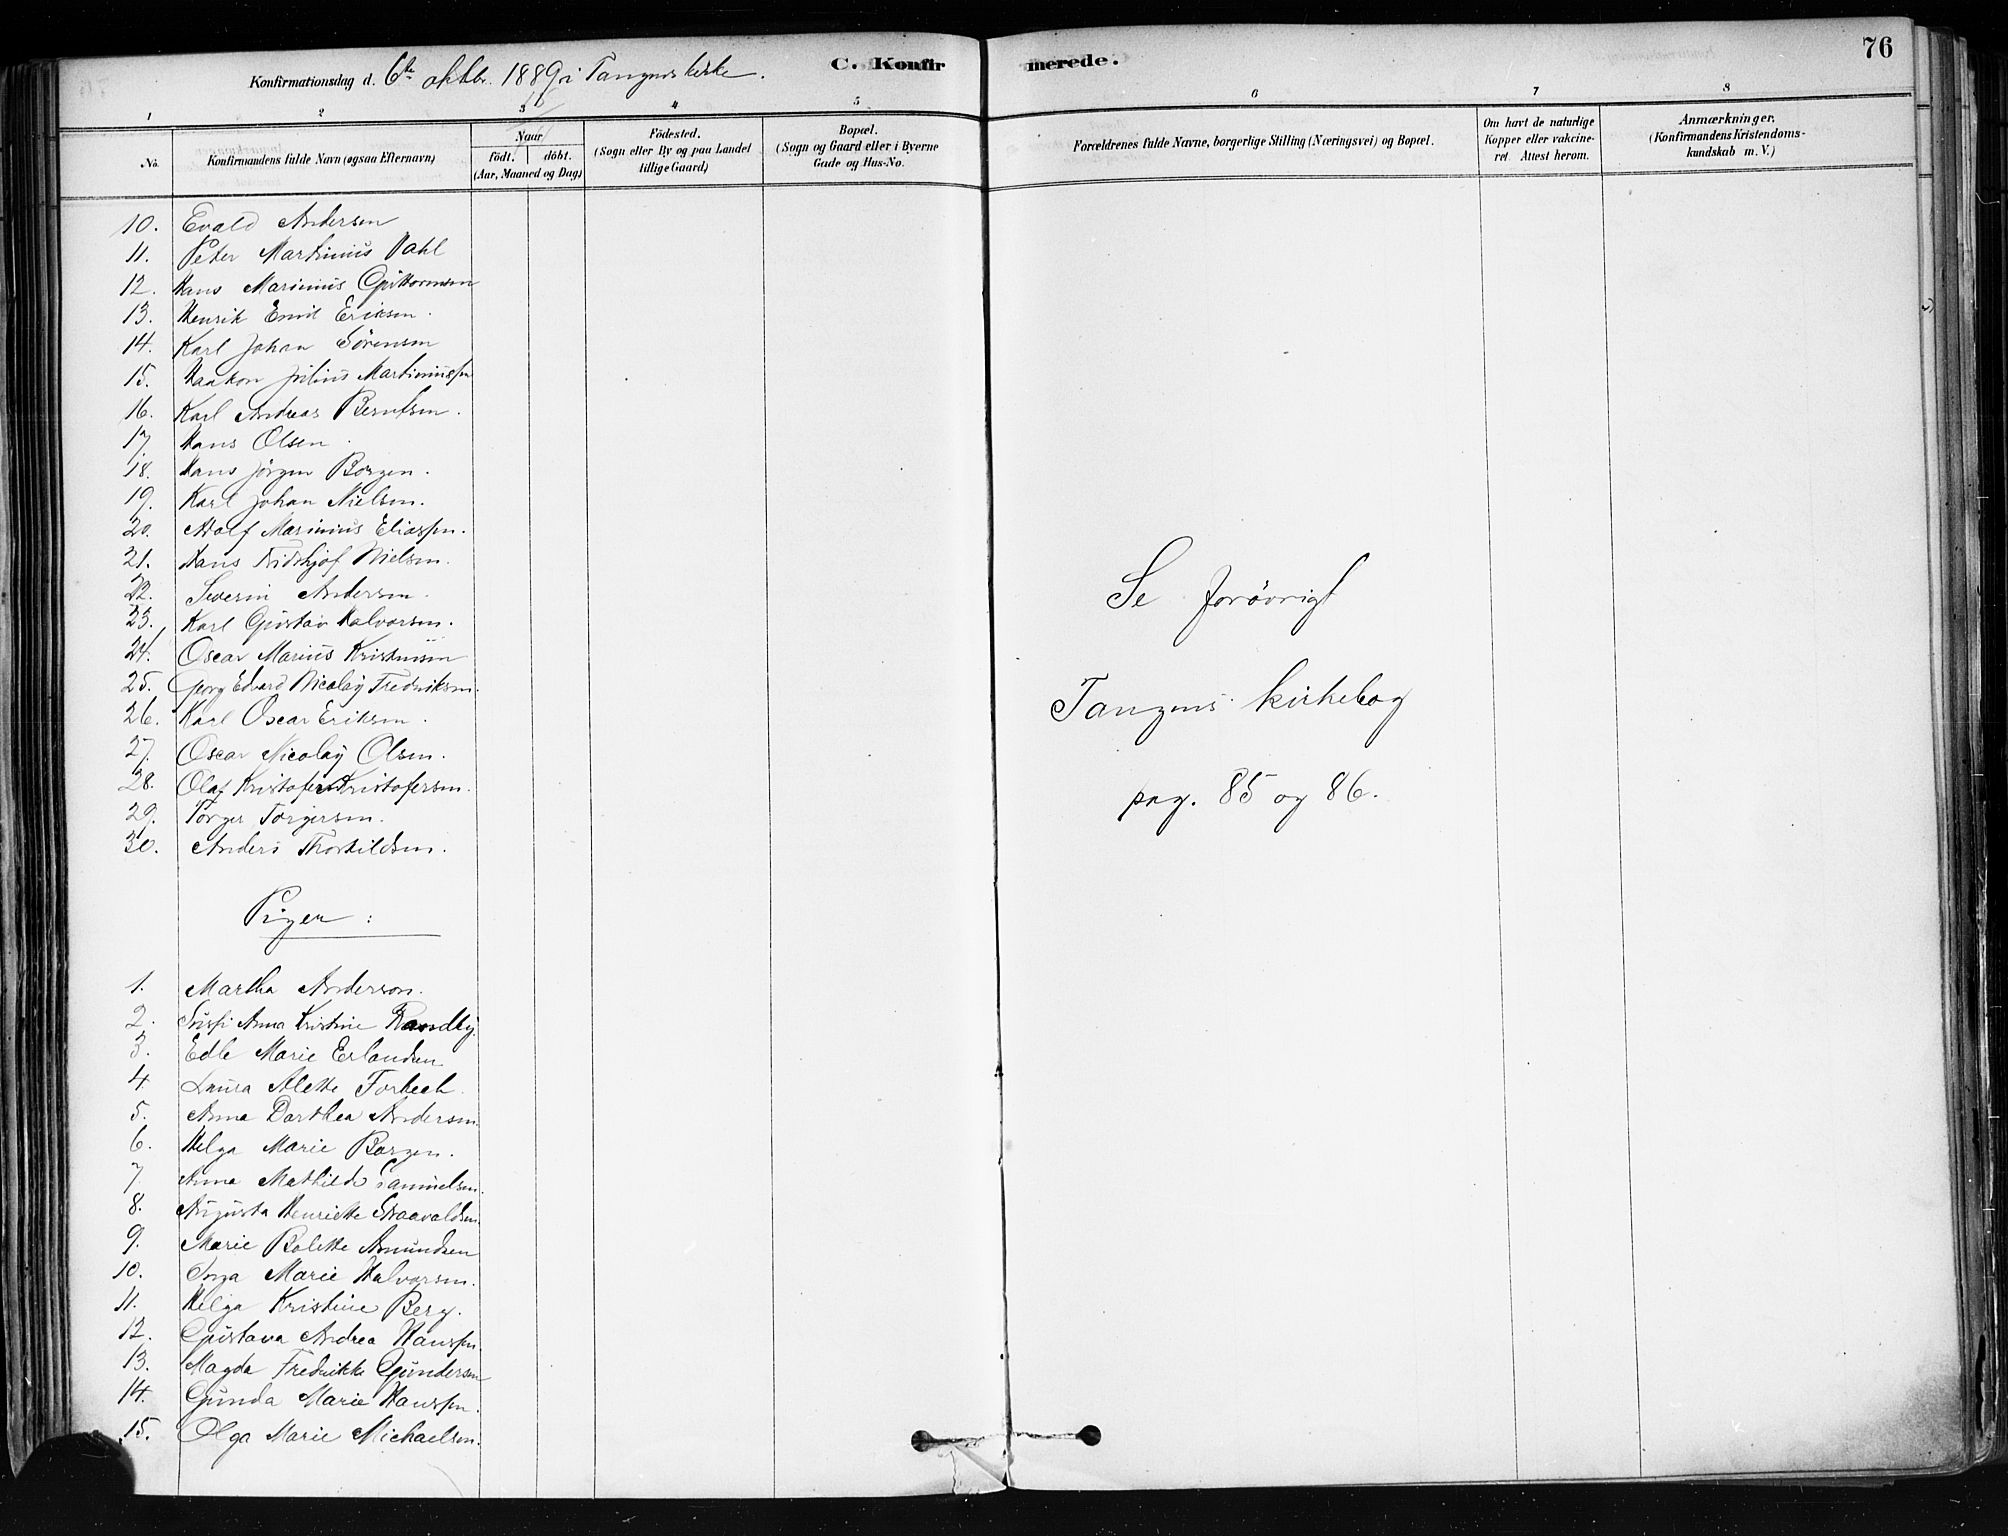 76
Konfirmationsdag d. 6te oktbr. 1889 i Tangens kirke.
C. Konfirmerede.
1 2 3 4 5 6 7 8
No.
Konfirmandens fulde Navn (ogsaa Efternavn)
Naar
födt. döbt.
(Aar, Maaned og Dag)
Födested.
(Sogn eller By og paa Landet
tillige Gaard)
Bopæl.
(Sogn og Gaard eller i Byerne
Gade og Hus-No.
Forældrenes fulde Navne, borgerlige Stilling (Næringsvei) og Bopæl.
Om havt de naturlige
Kopper eller vakcine-
ret. Attest herom.
Anmærkninger.
(Konfirmandens Kristendoms-
kundskab m. V.)
10. Evald Andersen
11. Peter Martinius Dahl
12. Hans Marinius Guttormsen
13. Henrik Emil Eriksen.
14. Karl Johan Sörensen
15. Haakon Julius Martiniussen
16. Karl Andreas Berntsen.
17. Hans Olsen.
18. Hans Jörgen Borgen.
19. Karl Johan Nielsen.
20. Adolf Marinius Eliassen.
21. Hans Fridthjof Nielsen.
22. Severin Andersen.
23. Karl Gustav Halvorsen.
24. Oscar Marius Kristensen
25. Georg Edvard Nicolay Fredriksen.
26. Karl Oscar Eriksen.
27. Oscar Nicolay Olsen.
28. Olaf Kristofer Kristofersen.
29. Torger Torgersen.
30. Anders Thorkildsen.
Piger:
1. Martha Anderson.
2. Anna Kristine Randby.
3. Edle Marie Erlandsen
4. Laura Alette Forbech.
5. Anna Dorthea Andersen.
6. Helga Marie Borgen.
7. Anna Mathilde Samuelsen.
8. Augusta Henriette Staavaldsen.
9. Marie Bolette Amundsen
10. Inga Marie Halvorsen.
11. Helga Kristine Berg.
12. Gustava Andrea Hanssen.
13. Magda Fredrikke Gundersen
14. Gunda Marie Hanssen.
15. Olga Marie Michaelsen.
Se forövrigt
Tangens kirkebog
pag. 85 og 86.